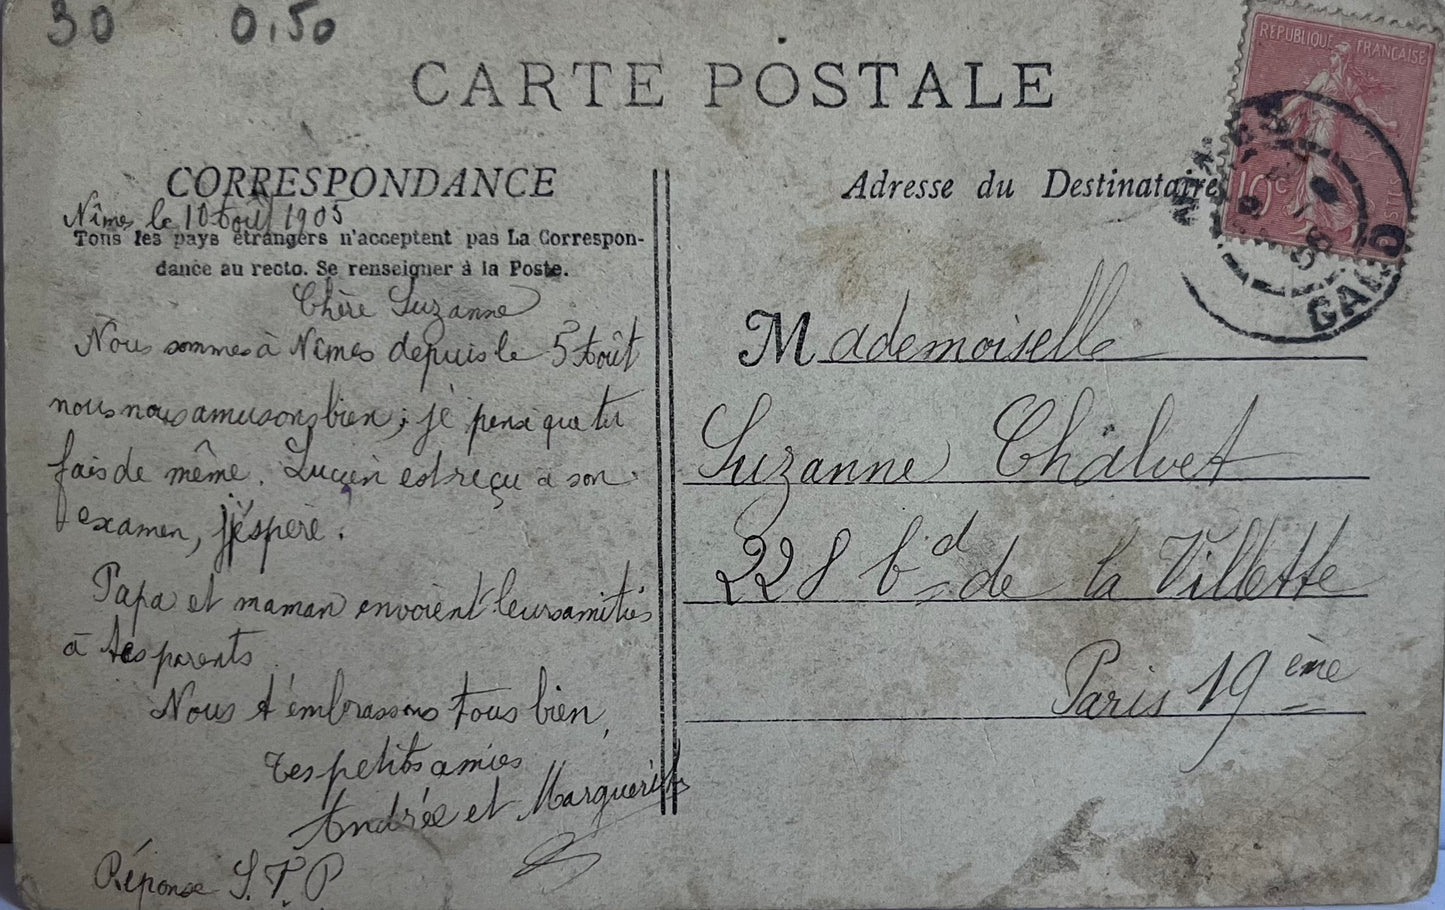 30 0,50
CARTE POSTALE
CORRESPONDANCE
Nîmes le 10 Août 1905
Tous les pays étrangers n'acceptent pas La Correspon-
dance au recto. Se renseigner à la Poste.
Chère Suzanne
Nous sommes à Nîmes depuis le 5 Août
nous nous amusons bien; je pense que tu
fais de même. Lucien est reçu à son
examen, j'éspère.
Papa et maman envoient leurs amitiés
à tes parents
Nous t'embrassons tous bien,
Tes petites amies
Andrée et Marguerite
Réponse S.V.P
Adresse du Destinataire
REPUBLIQUE FRANÇAISE
10c
POSTES
NIMES
GARD
Mademoiselle
Suzanne Chalvet
228 bd de la Villette
Paris 19ème